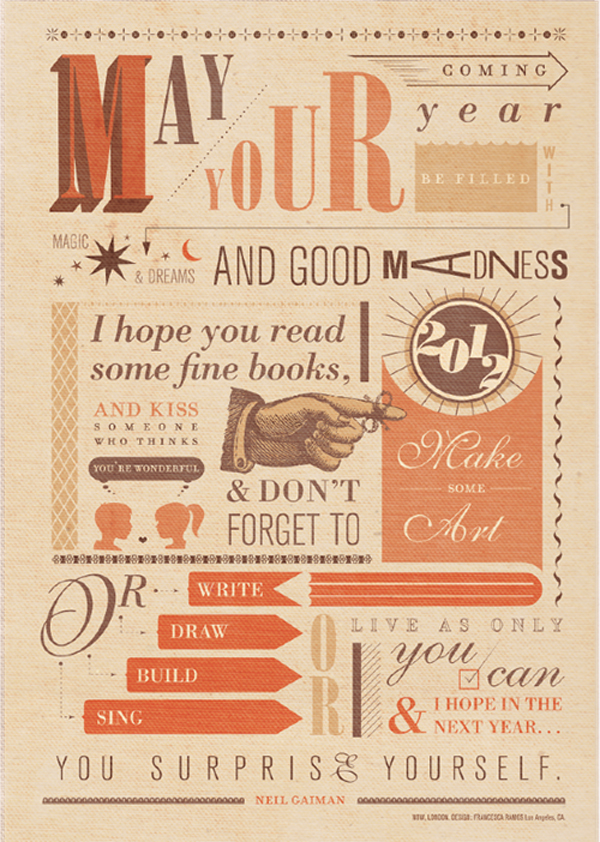 MAY
YOUR
COMING
year
BE FILLED
WITH
MAGIC
& DREAMS
AND GOOD MADNESS
I hope you read
some fine books,
AND KISS
SOMEONE
WHO THINKS
YOU'RE WONDERFUL
& DON'T
FORGET TO
2012
Make
SOME
Art
OR
WRITE
DRAW
BUILD
SING
OR
LIVE AS ONLY
you
can
& I HOPE IN THE
NEXT YEAR...
YOU SURPRISE YOURSELF.
NEIL GAIMAN
DESIGN: FRANCESCA RAMOS Los Angeles, CA.